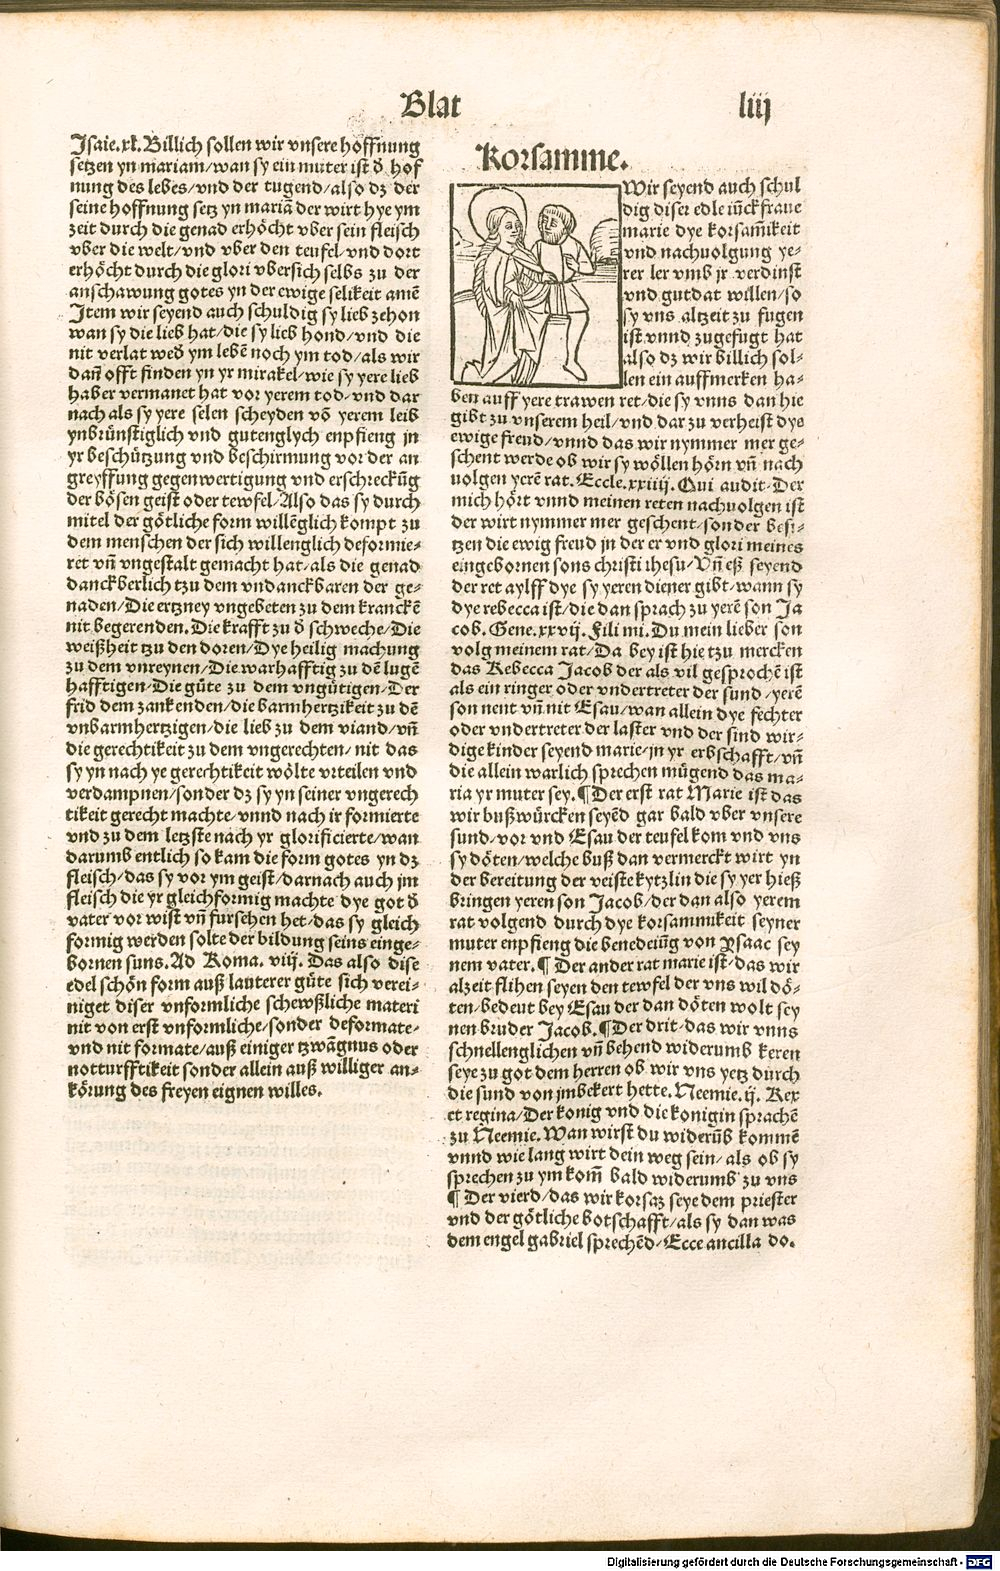 Blat liij
Jsaie.xl. Billich sollen wir vnsere hoffnung
setzen yn mariam/wan sy ein muter ist d̕ hof
nung des lebēs/vnd der tugend/also dz der
seine hoffnung setz yn mariā der wirt hye ym
zeit durch die genad erhöcht vber sein fleisch
vber die welt/vnd vber den teufel/vnd dort
erhöcht durch die glori vbersich selbs zu der
anschawung gotes yn der ewige selikeit amē
Jtem wir seyend auch schuldig sy lieb zehon
wan sy die lieb hat/die sy lieb hond/vnd die
nit verlat wed̕ ym lebē noch ym tod/als wir
dañ offt finden yn yr mirakel/wie sy yere lieb
haber vermanet hat vor yerem tod/vnd dar
nach als sy yere selen scheyden vō yerem leib
ynbrünstiglich vnd gutenglych enpfieng jn
yr beschützung vnd beschirmung vor der an
greyffung gegenwertigung vnd erschreckūg
der bösen geist oder tewfel/Also das sy durch
mitel der götliche form willēglich kompt zu
dem menschen der sich willenglich deformie⸗
ret vñ vngestalt gemacht hat/als die genad
danckberlich tzu dem vndanckbaren der ge⸗
naden/Die ertzney vngebeten zu dem kranckē
nit begerenden. Die krafft zu d̕ schweche/Die
weißheit tzu den doren/Dye heilig machung
zu dem vnreynen/Die warhafftig zu dē lugē
hafftigen/Die güte zu dem vngütigen/Der
frid dem zankenden/die barmhertzikeit zu dē
vnbarmhertzigen/die lieb zu dem viand/vñ
die gerechtikeit zu dem vngerechten/nit das
sy yn nach ye gerechtikeit wölte vrteilen vnd
verdampnen/sonder dz sy yn seiner vngerech
tikeit gerecht machte/vnnd nach ir formierte
vnd zu dem letzste nach yr glorificierte/wan
darumb entlich so kam die form gotes yn dz
fleisch/das sy vor ym geist/darnach auch jm
fleisch die yr gleichformig machte dye got d̕
vater vor wist vñ fursehen het/das sy gleich
formig werden solte der bildung seins einge⸗
bornen suns. Ad Roma. viij. Das also dise
edel schön form auß lauterer güte sich verei⸗
niget diser vnformliche schewßliche materi
nit von erst vnformliche/sonder deformate⸗
vnd nit formate/auß einiger tzwāgnus oder
notturfftikeit sonder allein auß williger an⸗
körung des freyen eignen willes.
Korsamme.
Wir seyend auch schul
dig diser edle iūckfraue
marie dye korsam̄keit
vnd nachuolgung ye⸗
rer ler vmb jr verdinst
vnd gutdat willen/so
sy vns altzeit zu fugen
ist vnnd zugefugt hat
also dz wir billich sol⸗
len ein auffmerken ha⸗
ben auff yere trawen ret/die sy vnns dan hie
gibt zu vnserem heil/vnd dar zu verheist dye
ewige freud/vnnd das wir nymmer mer ge⸗
schent werde ob wir sy wöllen hörn vñ nach
uolgen yerē rat. Eccle.xxiiij. Qui audit. Der
mich hört vnnd meinen reten nachuolgen ist
der wirt nymmer mer geschent/sonder besi⸗
tzen die ewig freud jn der er vnd glori meines
eingebornen sons christi ihesu/Vñ eß seyend
der ret aylff dye sy yeren diener gibt/wann sy
dye rebecca ist/die dan sprach zu yerē son Ja
cob. Gene.xxvij. Fili mi. Du mein lieber son
volg meinem rat/Da bey ist hie tzu mercken
das Rebecca Jacob der als vil gesprochē ist
als ein ringer oder vndertreter der sund/yerē
son nent vñ nit Esau/wan allein dye fechter
oder vndertreter der laster vnd der sind wir⸗
dige kinder seyend marie/jn yr erbschafft/vñ
die allein warlich sprechen mügend das ma⸗
ria yr muter sey. ¶ Der erst rat Marie ist das
wir buß würcken seyēd gar bald vber vnsere
sund/vor vnd Esau der teufel kom vnd vns
sy döten/welche buß dan vermerckt wirt yn
der bereitung der veiste kytzlin die sy yer hieß
bringen yeren son Jacob/der dan also yerem
rat volgend durch dye korsammikeit seyner
muter enpfieng die benedeiūg von Ysaac sey
nem vater. ¶ Der ander rat marie ist/das wir
alzeit flihen seyen den tewfel der vns wil dö⸗
ten/bedeut bey Esau der dan döten wolt sey
nen bruder Jacob. ¶ Der drit/das wir vnns
schnellenglichen vñ behend widerumb keren
seye zu got dem herren ob wir vns yetz durch
die sund von jm bekert hette. Neemie. ij. Rex
et regina/Der konig vnd die konigin sprachē
zu Neemie. Wan wirst du widerūb kommē
vnnd wie lang wirt dein weg sein/als ob sy
sprechen zu ym kom̄ bald widerumb zu vns
¶ Der vierd/das wir korsaz seye dem priester
vnd der götliche botschafft/als sy dan was
dem engel gabriel sprechēd/Ecce ancilla do.
Digitalisierung gefördert durch die Deutsche Forschungsgemeinschaft - DFG